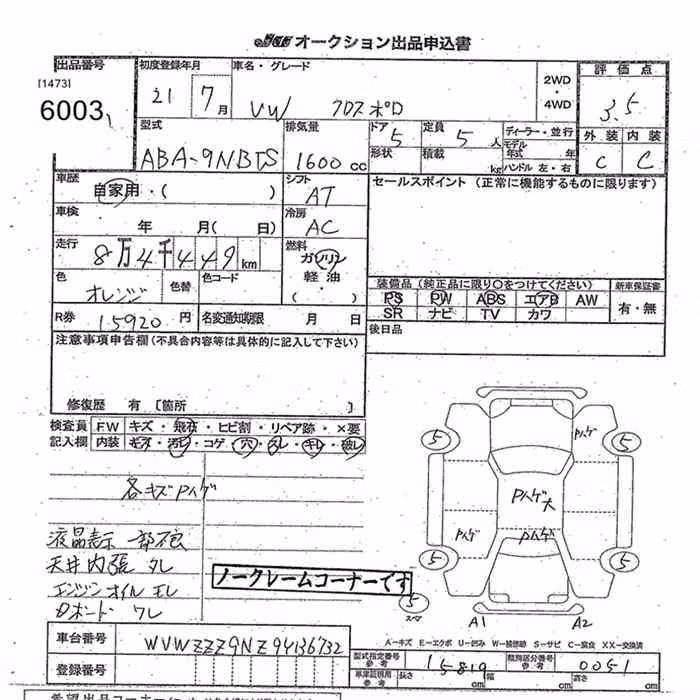 オークション出品申込書
出品番号 初度登録年月 車名・グレード 2WD ・ 4WD 評価点
[1473] 6003 21 7月 VW クロスポロ 3.5
型式 排気量 ドア 5 定員 5人 ディーラー・並行 外装 内装
ABA-9NBTS 1600cc 形状 積載 kg モデル年式 年 ハンドル 左・右 C C
車歴 自家用・( ) シフト AT セールスポイント (正常に機能するものに限ります)
車検 年 月( 日) 冷房 AC
走行 8万4千449km 燃料 ガソリン 軽油 ( )
色 オレンジ 色替 色コード 装備品(純正品に限り○をつけてください) 新車保証書
PS PW ABS エアB AW 有・無
SR ナビ TV カワ
R券 15920円 名変通知期限 月 日 後日品
注意事項申告欄(不具合内容等は具体的に記入して下さい)
修復歴 有 [箇所 ]
検査員 FW キズ・飛石・ヒビ割・リペア跡・×要
記入欄 内装 キズ・汚レ・コゲ・穴・スレ・キレ・破レ
各キズPハゲ
5 Pハゲ 5
Pハゲ大
Pハゲ Pハゲ
液晶表示一部
天井内張タレ
エンジンオイルモレ
Dボードワレ
ノークレームコーナーです
5 5
5 スペア
A1 A2
A-キズ E-エクボ U-凹み W-補修跡 S-サビ C-腐食 XX-交換済
車台番号 WVWZZZ9NZ94136732 型式指定番号 参考 15819 類別区分番号 参考 0051
登録番号 車庫証明用 参考 長さ cm 幅 cm 高さ cm